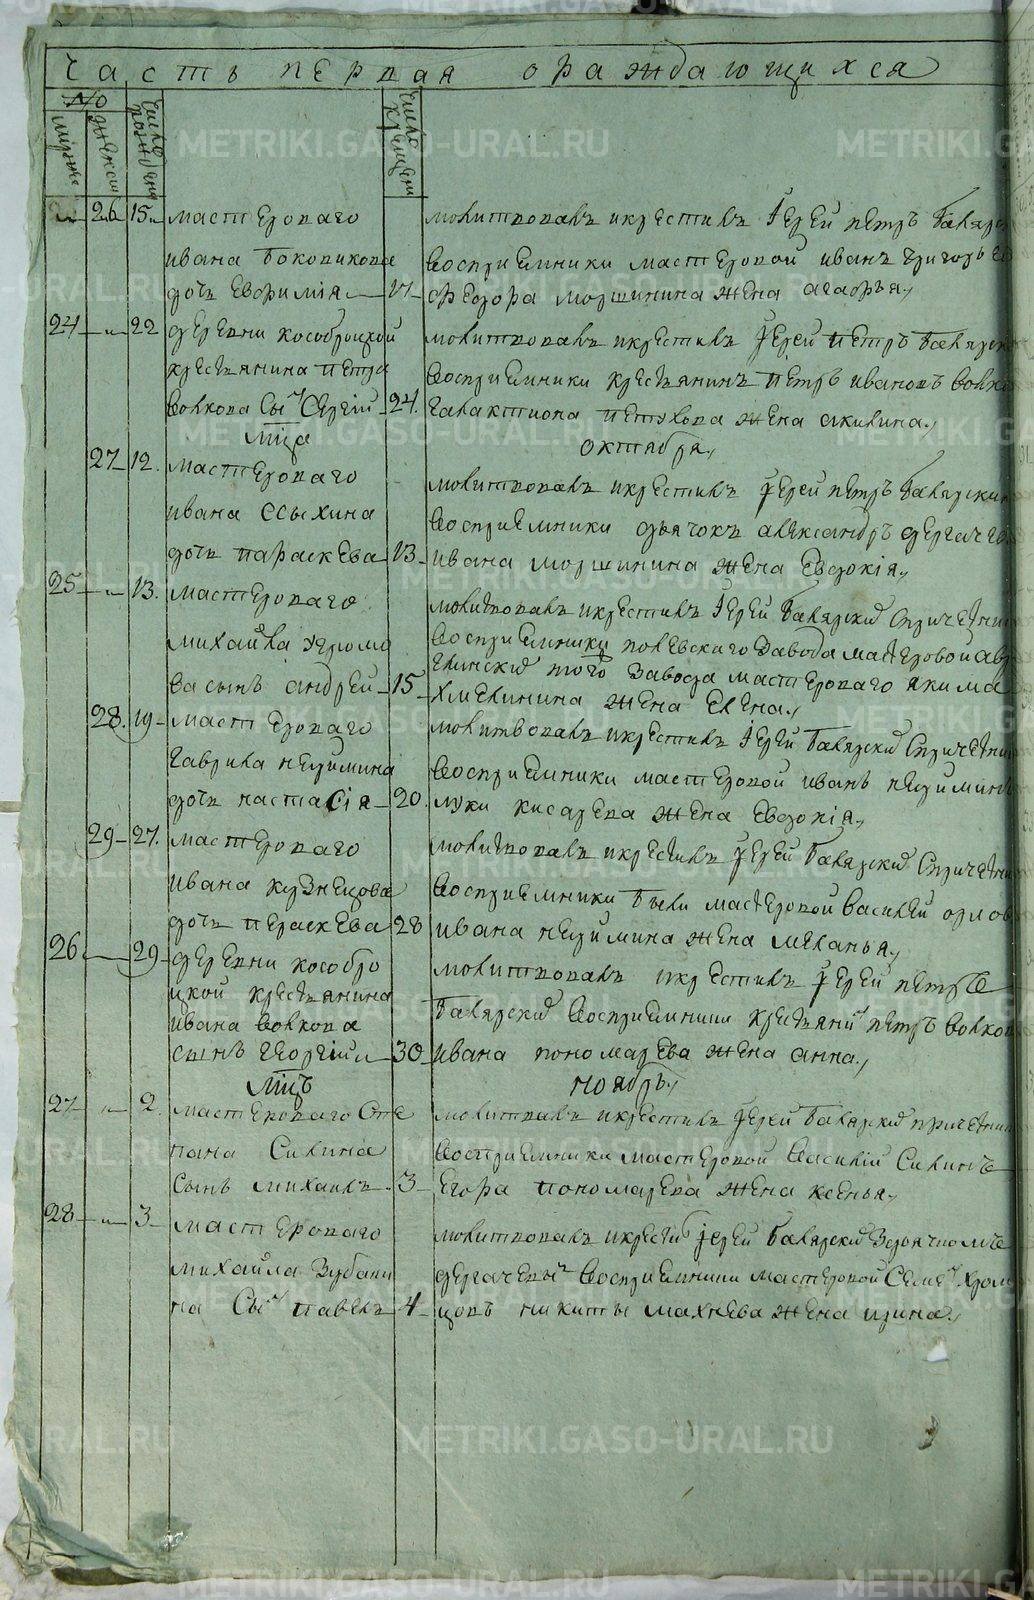 часть первая ораждающихся
№
мужска
женска
число рожденя
число крещени
26 15 мастероваго
ивана Боковикова
дочь Евфимия 17
молитвовалъ икрестилъ Іерей петръ Бавярс
Воспри Емники мастеровой иванъ григорьев
федора моршинина жена агафья
24 22 деревни кособроцкой
крестьянина петра
Волкова Сынъ Сергій 24
молитвовалъ икрестилъ Іерей петръ Бавярск
Воспри Емники крестьянинъ петръ ивановъ Волко
галактиона петухова жена акилина
мца октября
27 12 мастероваго
ивана ссыхина
дочь параскева 13
молитвовалъ икрестилъ Іерей петръ Бавярски
Восприемники дьячокъ александръ дергачев
ивана моршинина жена Евдокія
25 13 мастероваго
михайла
сынъ андрей 15
молитвовалъ икрестилъ Іерей Бавярский Спричетни
Восприемники полевскаго завода мастеровой
того завода мастероваго якима
хмелинина жена Елена
28 19 мастероваго
гаврила неуймина
дочь настасія 20
молитвовалъ икрестилъ Іерей Бавярский Спричетни
Восприемники мастеровой иванъ неуиминъ
луки кисарева жена Евдокія
29 27 мастероваго
ивана кузнецова
дочь пераскева 28
молитвовалъ икрестилъ Іерей Бавярский Спричетни
Восприемники Были мастеровой Василей орлов
ивана неуимина жена меланья
26 29 деревни кособро
цкой крестьянина
ивана Волкова
сынъ георгій 30
молитвовалъ икрестилъ Іерей петръ
Бавярский Восприемники крестьянинъ петръ Волков
ивана пономарева жена анна
мцъ ноябрь
27 2 мастероваго Сте
пана Силина
сынъ михаилъ 3
молитвалъ икрестилъ Іерей Бавярский причетни
Восприемники мастеровой Василій Силинъ
Егора пономарева жена ксенья
28 3 мастероваго
михайла Зубани
на Сынъ павелъ 4
молитвовалъ икрестилъ Іерей Бавярский Здьячкомъ
дергачевымъ Восприемники мастеровой Семенъ хром
цовъ никиты махнева жена ирина
METRIKI.GASO-URAL.RU